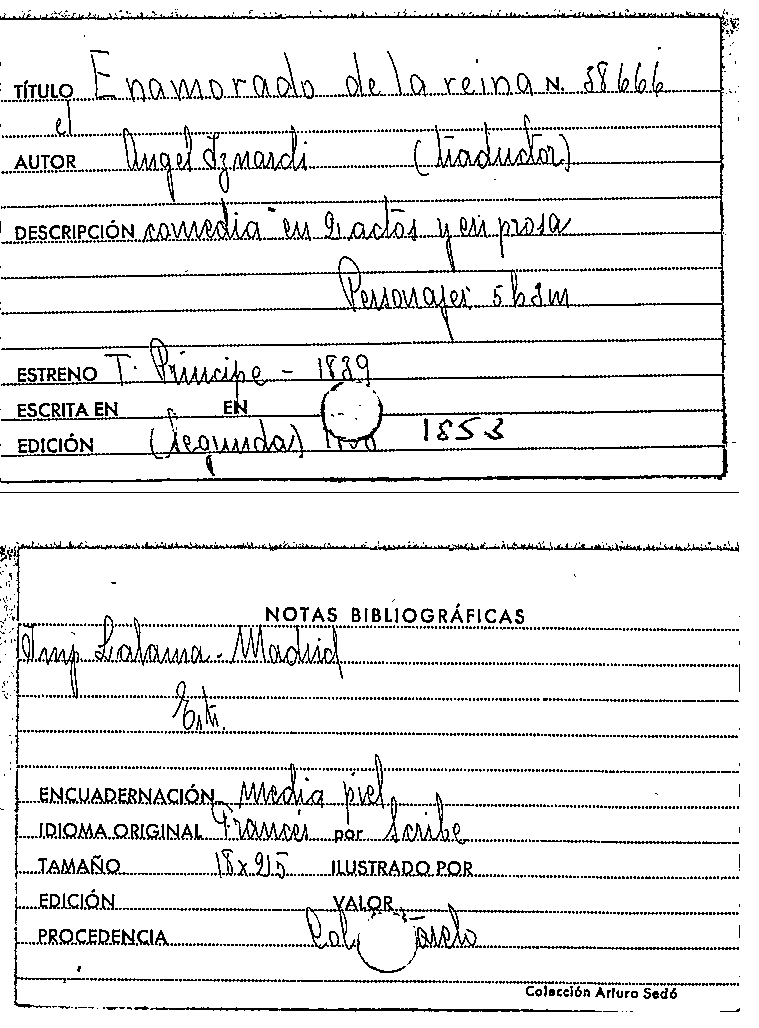 TÍTULO Enamorado de la reina N. 38666
el
AUTOR Angel Iznardi (traductor)
DESCRIPCIÓN comedia en 2 actos y en prosa
Personajes 5h 3m
ESTRENO T. Principe - 1839
ESCRITA EN EN
EDICIÓN (Segunda) 1853
NOTAS BIBLIOGRÁFICAS
Imp Lalama - Madrid
ENCUADERNACIÓN media piel
IDIOMA ORIGINAL Francés por Scribe
TAMAÑO 18x2,5 ILUSTRADO POR
EDICIÓN VALOR
PROCEDENCIA Col
Colección Arturo Sedó